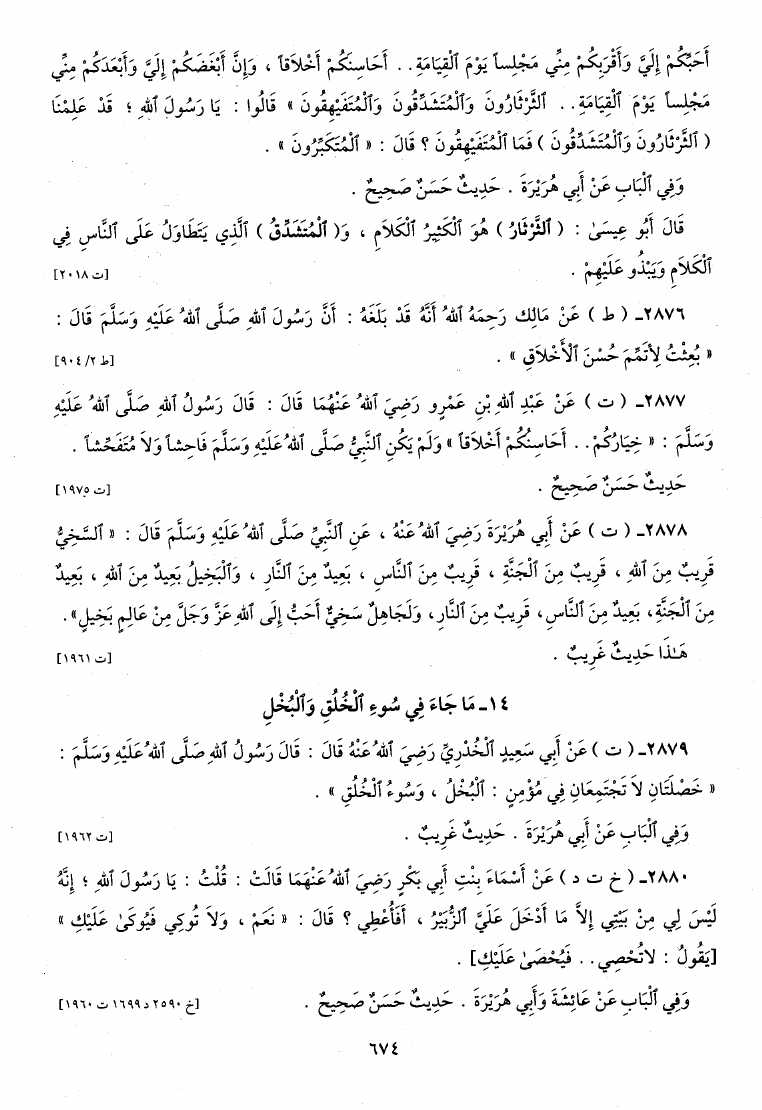 أَحَبِّكُمْ إِلَيَّ وَأَقْرَبِكُمْ مِنِّي مَجْلِساً يَوْمَ ٱلْقِيَامَةِ.. أَحَاسِنَكُمْ أَخْلَاقاً ، وَإِنَّ أَبْغَضَكُمْ إِلَيَّ وَأَبْعَدَكُمْ مِنِّي
مَجْلِساً يَوْمَ ٱلْقِيَامَةِ.. ٱلثَّرْثَارُونَ وَٱلْمُتَشَدِّقُونَ وَٱلْمُتَفَيْهِقُونَ » قَالُوا : يَا رَسُولَ ٱللهِ ؛ قَدْ عَلِمْنَا
( ٱلثَّرْثَارُونَ وَٱلْمُتَشَدِّقُونَ ) فَمَا ٱلْمُتَفَيْهِقُونَ ؟ قَالَ : « ٱلْمُتَكَبِّرُونَ » .
وَفِي ٱلْبَابِ عَنْ أَبِي هُرَيْرَةَ . حَدِيثٌ حَسَنٌ صَحِيحٌ .
قَالَ أَبُو عِيسَىٰ : ( ٱلثَّرْثَارُ ) هُوَ ٱلْكَثِيرُ ٱلْكَلاَمِ ، وَ( ٱلْمُتَشَدِّقُ ) ٱلَّذِي يَتَطَاوَلُ عَلَى ٱلنَّاسِ فِي
ٱلْكَلاَمِ وَيَبْذُو عَلَيْهِمْ . [ت ٢٠١٨]
٢٨٧٦ـ ( ط ) عَنْ مَالِك رَحِمَهُ ٱللهُ أَنَّهُ قَدْ بَلَغَهُ : أَنَّ رَسُولَ ٱللهِ صَلَّى ٱللهُ عَلَيْهِ وَسَلَّمَ قَالَ :
« بُعِثْتُ لِأُتَمِّمَ حُسْنَ ٱلْأَخْلَاقِ » . [ط ٢/ ٩٠٤]
٢٨٧٧ـ ( ت ) عَنْ عَبْدِ ٱللهِ بْنِ عَمْرٍو رَضِيَ ٱللهُ عَنْهُمَا قَالَ : قَالَ رَسُولُ ٱللهِ صَلَّى ٱللهُ عَلَيْهِ
وَسَلَّمَ : « خِيَارُكُمْ.. أَحَاسِنُكُمْ أَخْلَاقاً » وَلَمْ يَكُنِ ٱلنَّبِيُّ صَلَّى ٱللهُ عَلَيْهِ وَسَلَّمَ فَاحِشاً وَلاَ مُتَفَحِّشاً .
حَدِيثٌ حَسَنٌ صَحِيحٌ . [ت ١٩٧٥]
٢٨٧٨ـ ( ت ) عَنْ أَبِي هُرَيْرَةَ رَضِيَ ٱللهُ عَنْهُ ، عَنِ ٱلنَّبِيِّ صَلَّى ٱللهُ عَلَيْهِ وَسَلَّمَ قَالَ : « ٱلسَّخِيُّ
قَرِيبٌ مِنَ ٱللهِ ، قَرِيبٌ مِنَ ٱلْجَنَّةِ ، قَرِيبٌ مِنَ ٱلنَّاسِ ، بَعِيدٌ مِنَ ٱلنَّارِ ، وَٱلْبَخِيلُ بَعِيدٌ مِنَ ٱللهِ ، بَعِيدٌ
مِنَ ٱلْجَنَّةِ، بَعِيدٌ مِنَ ٱلنَّاسِ، قَرِيبٌ مِنَ ٱلنَّارِ، وَلَجَاهِلٌ سَخِيٌّ أَحَبُّ إِلَى ٱللهِ عَزَّ وَجَلَّ مِنْ عَالِمٍ بَخِيلٍ» .
هَـٰذَا حَدِيثٌ غَرِيبٌ . [ت ١٩٦١]
١٤ـ مَا جَاءَ فِي سُوءِ ٱلْخُلُقِ وَٱلْبُخْلِ
٢٨٧٩ـ ( ت ) عَنْ أَبِي سَعِيدٍ ٱلْخُدْرِيِّ رَضِيَ ٱللهُ عَنْهُ قَالَ : قَالَ رَسُولُ ٱللهِ صَلَّى ٱللهُ عَلَيْهِ وَسَلَّمَ :
« خَصْلَتَانِ لاَ تَجْتَمِعَانِ فِي مُؤْمِنٍ : ٱلْبُخْلُ ، وَسُوءُ ٱلْخُلُقِ » .
وَفِي ٱلْبَابِ عَنْ أَبِي هُرَيْرَةَ . حَدِيثٌ غَرِيبٌ . [ت ١٩٦٢]
٢٨٨٠ـ ( خ ت د ) عَنْ أَسْمَاءَ بِنْتِ أَبِي بَكْرٍ رَضِيَ ٱللهُ عَنْهُمَا قَالَتْ : قُلْتُ : يَا رَسُولَ ٱللهِ ؛ إِنَّهُ
لَيْسَ لِي مِنْ بَيْتِي إِلاَّ مَا أَدْخَلَ عَلَيَّ ٱلزُّبَيْرُ ، أَفَأُعْطِي ؟ قَالَ : « نَعَمْ ، وَلاَ تُوكِي فَيُوكَىٰ عَلَيْكِ »
[يَقُولُ : لاَتُحْصِي.. فَيُحْصَىٰ عَلَيْكِ] .
وَفِي ٱلْبَابِ عَنْ عَائِشَةَ وَأَبِي هُرَيْرَةَ . حَدِيثٌ حَسَنٌ صَحِيحٌ . [خ ٢٥٩٠ د ١٦٩٩ ت ١٩٦٠]
٦٧٤